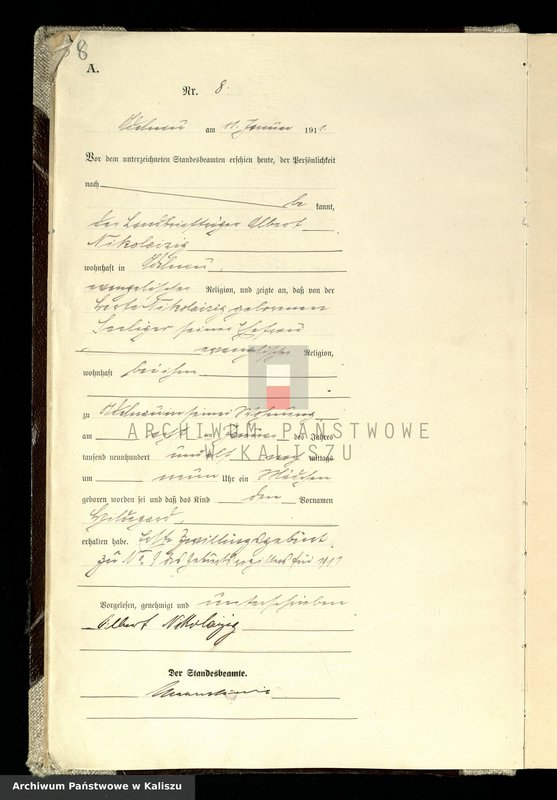 8
A.
Nr. 8.
Adelnau am 11. Januar 1911.
Vor dem unterzeichneten Standesbeamten erschien heute, der Persönlichkeit
nach
be kannt,
der Landbriefträger Albert
Nikolaizig
wohnhaft in Adelnau,
evangelischer Religion, und zeigte an, daß von der
Nikolaizig geborenen
Seeliger, seiner Ehefrau
evangelischer Religion,
wohnhaft bei ihm
zu Adelnau in seiner Wohnung
am Januar des Jahres
tausend neunhundert und elf mittags
um neun Uhr ein Mädchen
geboren worden sei und daß das Kind den Vornamen
Hildegard,
erhalten habe. Erste Zwillingsgeburt.
Zu No. 9 des Geburtsregisters für 1911
Vorgelesen, genehmigt und unterschrieben
Albert Nikolaizig
Der Standesbeamte.
ARCHIWUM PAŃSTWOWE
W KALISZU
Archiwum Państwowe w Kaliszu